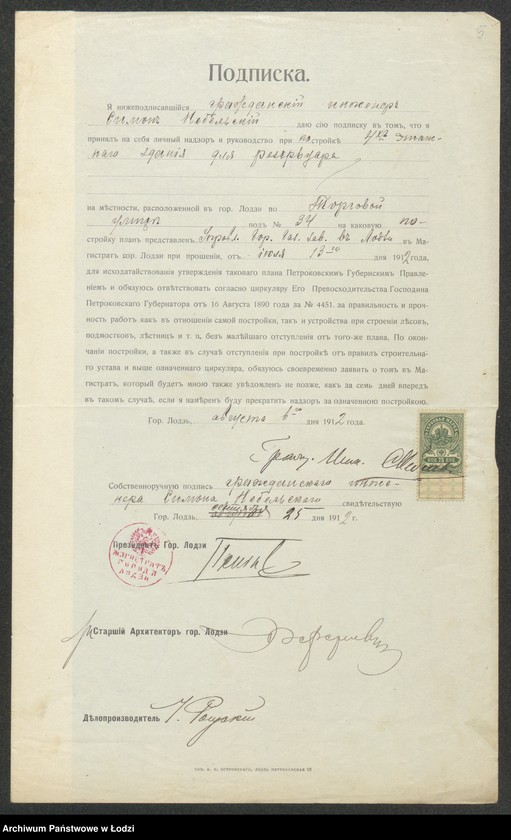 5
Подписка.
Я нижеподписавшійся гражданскій инженеръ
Симонъ Небельскій даю сію подписку въ томъ, что я
принялъ на себя личный надзоръ и руководство при постройкѣ 4хъ этаж-
наго зданія для резервуара
на мѣстности, расположенной въ гор. Лодзи по Торговой
улицѣ подъ № 24 на каковую по-
стройку планъ представленъ Гор. Газ. Зав. въ Лодзи въ Ма-
гистратъ гор. Лодзи при прошеніи, отъ іюля 13го дня 1912 года,
для исходатайствованія утвержденія таковаго плана Петроковскимъ Губернскимъ Правле-
ніемъ и обязуюсь отвѣтствовать согласно циркуляру Его Превосходительства Господина
Петроковскаго Губернатора отъ 16 Августа 1890 года за № 4451. за правильность и проч-
ность работъ какъ въ отношеніи самой постройки, такъ и устройства при строеніи лѣсовъ,
подмостковъ, лѣстницъ и т. п. безъ малѣйшаго отступленія отъ того-же плана. По окон-
чаніи постройки, а также въ случаѣ отступленія при постройкѣ отъ правилъ строительна-
го устава и выше означеннаго циркуляра, обязуюсь своевременно заявить о томъ въ Ма-
гистратъ, который будетъ мною также увѣдомленъ не позже, какъ за семь дней впередъ
въ такомъ случаѣ, если я намѣренъ буду прекратить надзоръ за означенною постройкою.
Гор. Лодзь, августа 6го дня 1912 года.
Гражд. Инж.
Собственноручную подпись гражданскаго инже-
нера Симона Небельскаго свидѣтельствую
Гор. Лодзь, 25 дня 1912 г.
Президентъ Гор. Лодзи
МАГИСТРАТЪ ГОРОДА ЛОДЗИ
Старшій Архитекторъ гор. Лодзи
Дѣлопроизводитель
Archiwum Państwowe w Łodzi